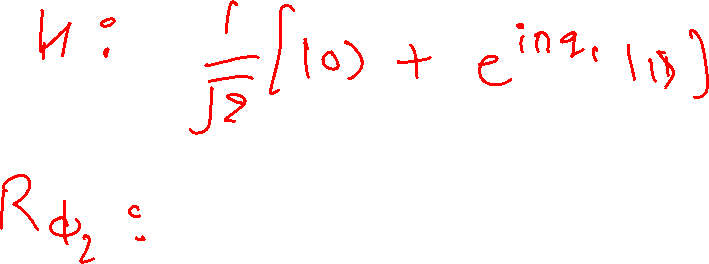 H: 1/√2 [|0⟩ + e^{iπq₁} |1⟩]
R_{ϕ₂}: